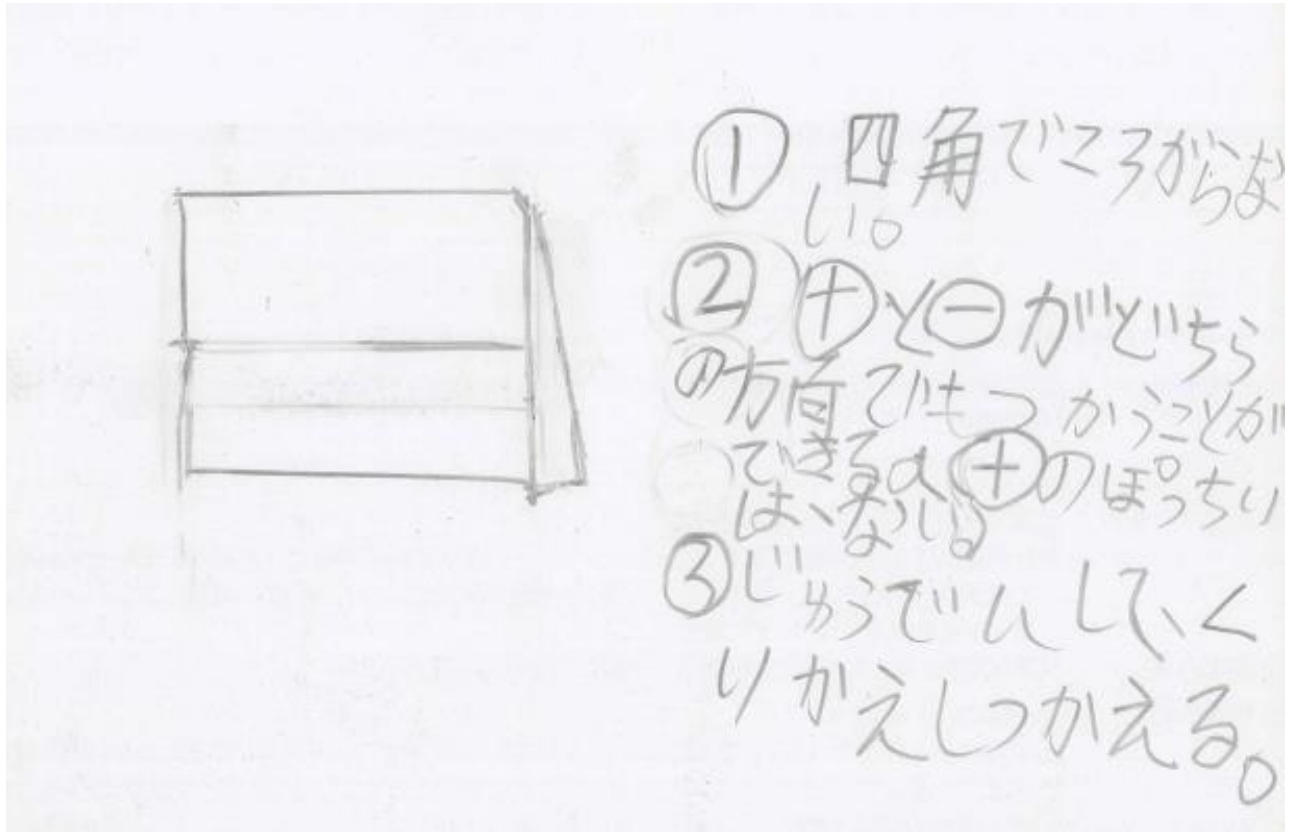 ① 四角でころがらな
い。
② ⊕と⊖がどちら
の方向でもつかうことが
できる。⊕のぽっちい
は、ない。
③じゅうでんして、く
りかえしつかえる。